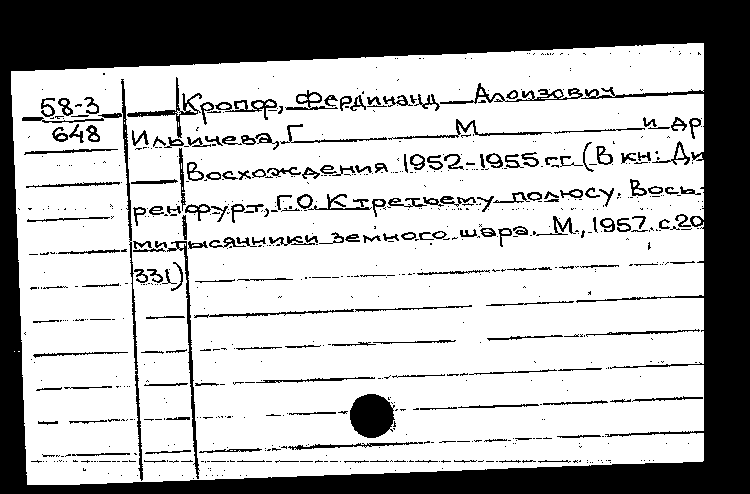 58-3 Кропф, Фердинанд Алоизович
648 Ильичева, Г М и др
Восхождения 1952-1955 гг (В кн: Ди
ренфурт, Г.О. К третьему полюсу. Вось-
митысячники земного шара. М., 1957. с. 20
331)